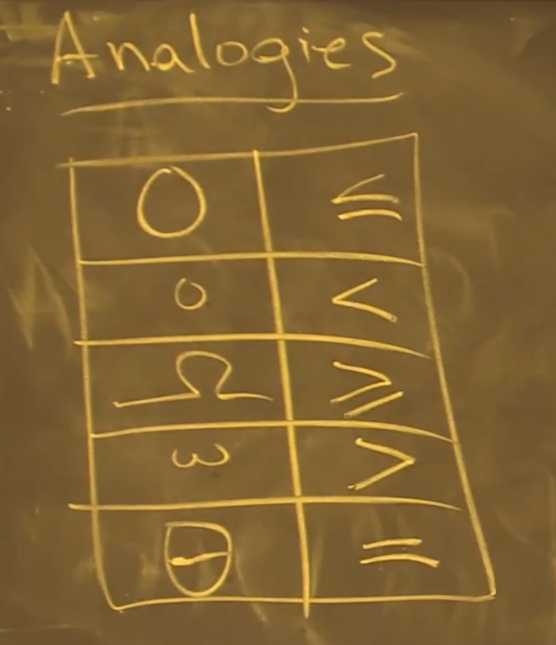 Analogies
O ≤
o <
Ω ≥
ω >
Θ =